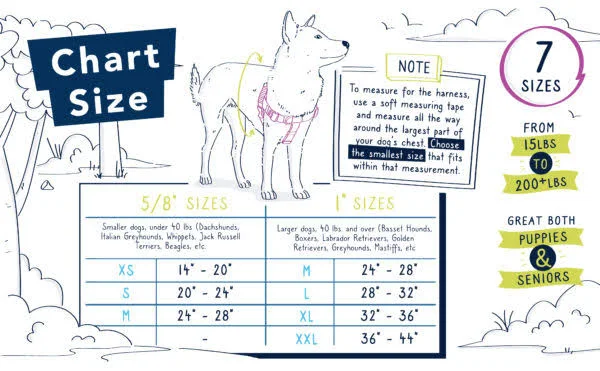 Chart
Size
NOTE
To measure for the harness,
use a soft measuring tape
and measure all the way
around the largest part of
your dog's chest. Choose
the smallest size that fits
within that measurement.
7
SIZES
FROM
15LBS
TO
200+LBS
GREAT BOTH
PUPPIES
&
SENIORS
5/8" SIZES
1" SIZES
Smaller dogs, under 40 lbs (Dachshunds,
Italian Greyhounds, Whippets, Jack Russell
Terriers, Beagles, etc.
Larger dogs, 40 lbs. and over (Basset Hounds,
Boxers, Labrador Retrievers, Golden
Retrievers, Greyhounds, Mastiffs, etc
XS 14" - 20" M 24" - 28"
S 20" - 24" L 28" - 32"
M 24" - 28" XL 32" - 36"
- XXL 36" - 44"